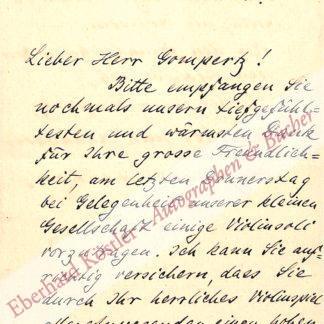 Lieber Herr Gompertz!
Bitte empfangen Sie
nochmals unsern tiefgefühl-
testen und wärmsten Dank
für Ihre grosse Freundlich-
keit, am letzten Donnerstag
bei Gelegenheit unserer kleinen
Gesellschaft einige Violinsoli
vorzutragen. Ich kann Sie auf-
richtig versichern, dass Sie
durch Ihr herrliches Violinspiel
allen Anwesenden einen hohen
Eberhard Köstler Autographen & Bücher